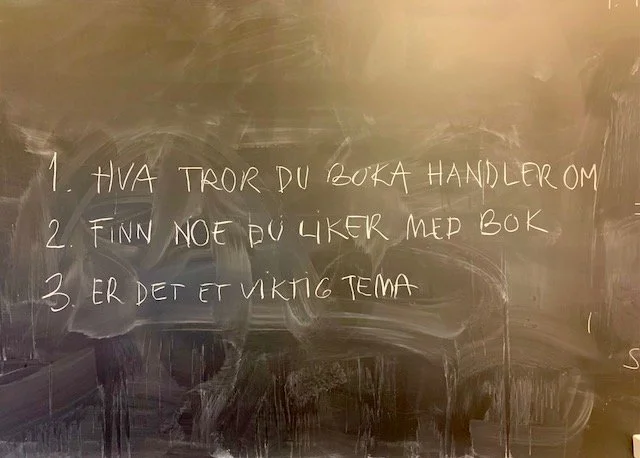 1. HVA TROR DU BOKA HANDLER OM
2. FINN NOE DU LIKER MED BOK
3. ER DET ET VIKTIG TEMA